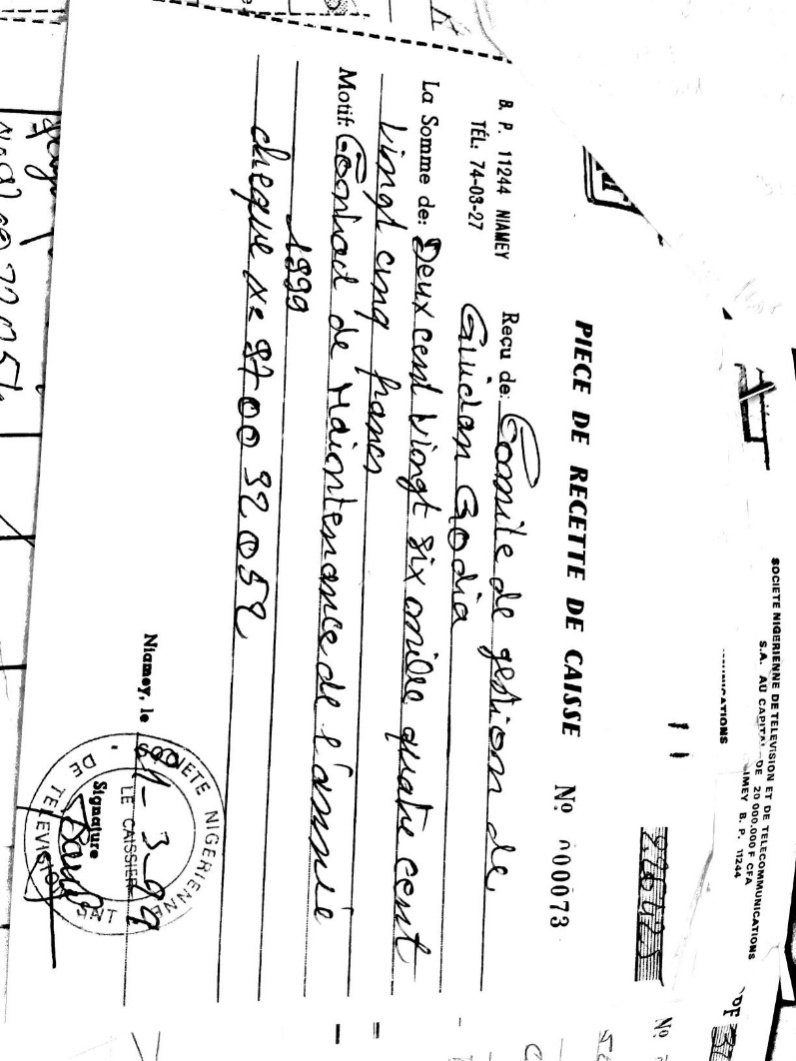 SOCIETE NIGERIENNE DE TELEVISION ET DE TELECOMMUNICATIONS
S.A. AU CAPITAL DE 20 000.000 F CFA
B. P. 11244
226425
PIECE DE RECETTE DE CAISSE Nº 000073
B. P. 11244 NIAMEY
TÉL: 74-03-27
Reçu de: Comite de gestion de
Guidan Godia
La Somme de: Deux cent Vingt six mille quatre cent
Vingt cinq francs
Motif: Contrat de Maintenance de l'année
1999
cheque Nº 8700 32052
Niamey, le 11-3-99
Signature
SOCIETE NIGERIENNE DE TELEVISION
LE CAISSIER
SNT
Nº